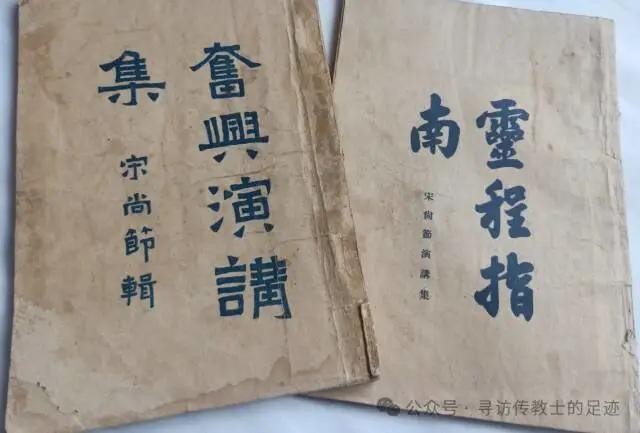 奮興演講
集
宋尚節輯
靈程指
南
宋尚節演講集
公众号 · 寻访传教士的足迹